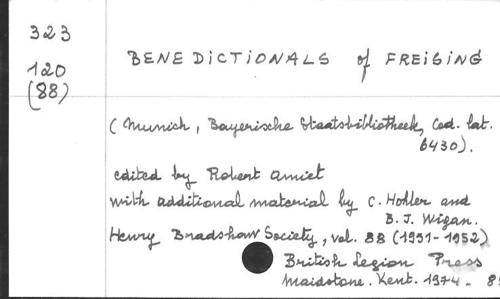 323
120
(88)
BENEDICTIONALS of FREISING
(Munich, Bayerische Staatsbibliotheek, Cod. lat.
6430).
edited by Robert Amiet
with additional material by C. Hohler and
B. J. Wigan.
Henry Bradshaw Society, vol. 88 (1951-1952)
British Legion Press
Maidstone. Kent. 1974. 8